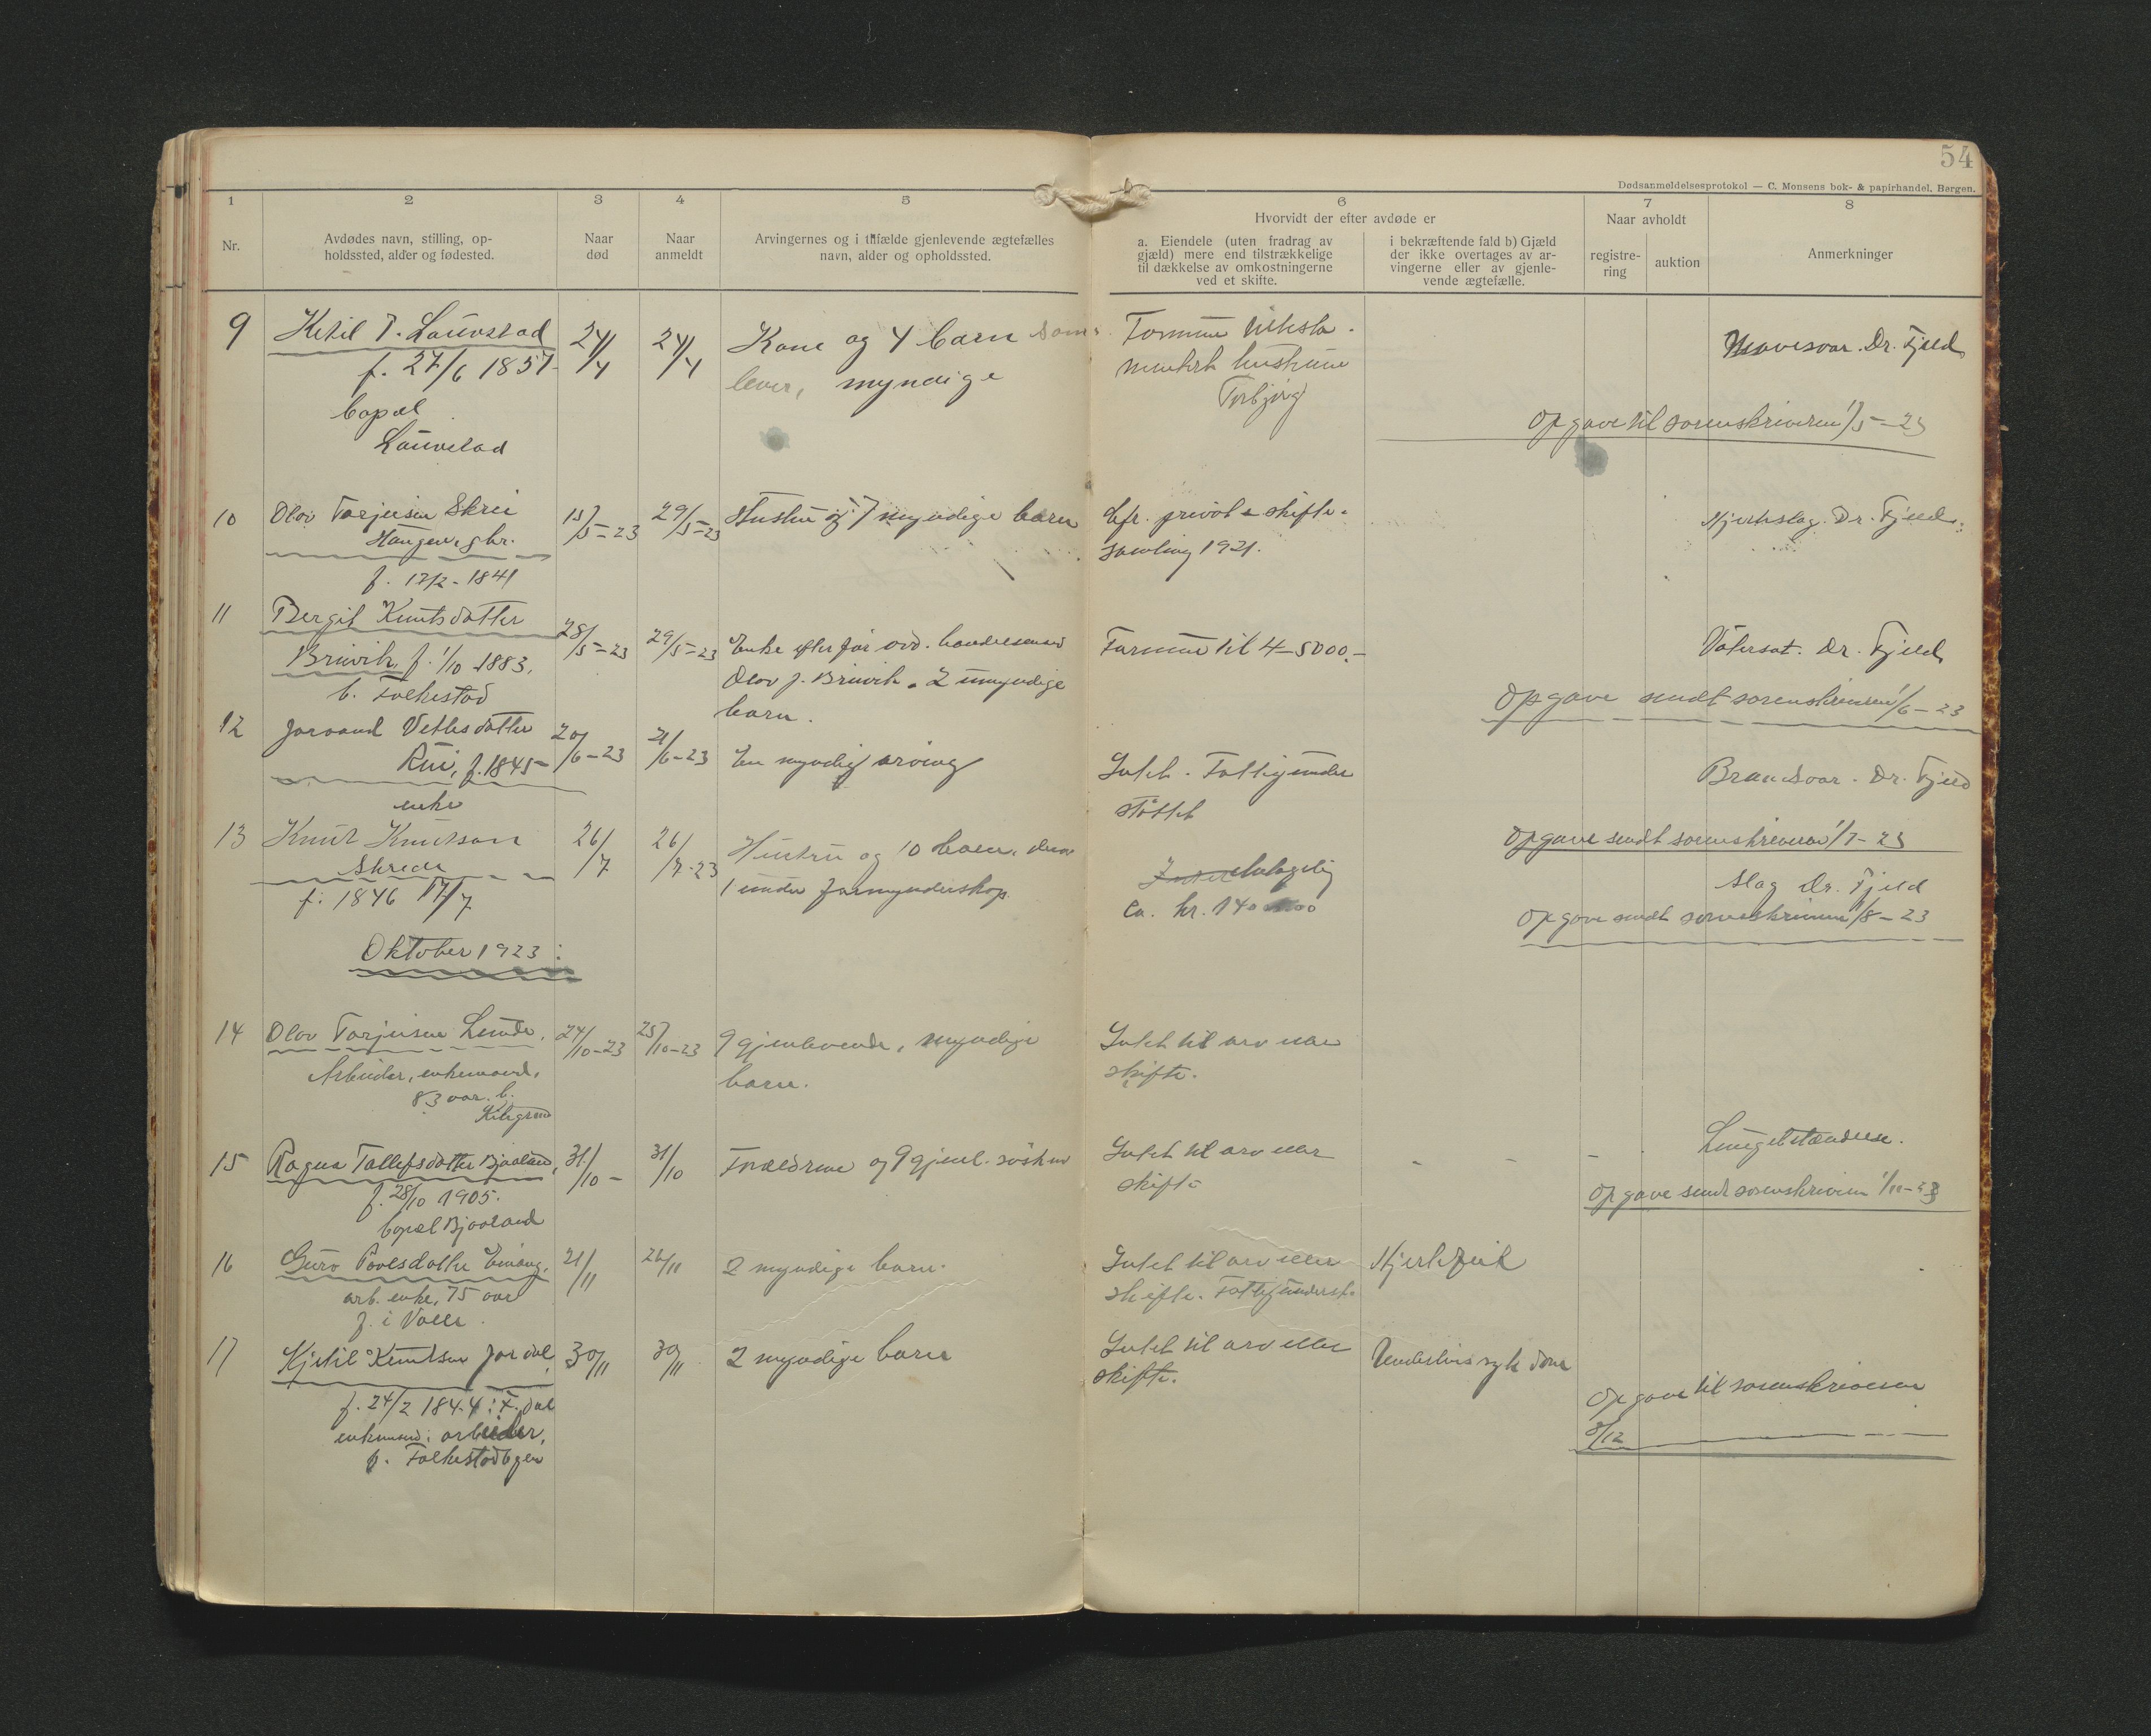 54
Dødsanmeldelsesprotokol — C. Monsens bok- & papirhandel, Bergen.
1
2
3
4
5
6
7
8
Nr.
Avdødes navn, stilling, op-
holdssted, alder og fødested.
Naar
død
Naar
anmeldt
Arvingernes og i tilfælde gjenlevende ægtefælles
navn, alder og opholdssted.
Hvorvidt der efter avdøde er
a. Eiendele (uten fradrag av
gjæld) mere end tilstrækkelige
til dækkelse av omkostningerne
ved et skifte.
i bekræftende fald b) Gjæld
der ikke overtages av ar-
vingerne eller av gjenle-
vende ægtefælle.
Naar avholdt
registre-
ring
auktion
Anmerkninger
9
Ketil T. Lauvstad
f. 27/6 1857
bopæl
Lauvstad
24/4
24/4
Kone og 4 barn som
lever, myndige
Formue
hustruen
Torbjørg
Dr. Fjeld
Opgave til sorenskriveren 1/5-23
10
Olov Torjusen Skrei
Haugen, gbr.
f. 17/2-1841
15/5-23
29/5-23
Hustru og 7 myndige barn
Cfr. privat skifte-
samling 1921.
Hjerteslag. Dr. Fjeld
11
Bergit Knutsdatter
Bruvik, f. 1/10 1883,
b. Folkestad
28/5-23
29/5-23
Enke efter før avd. handelsmand
Olov J. Bruvik. 2 umyndige
barn.
Formue til 4-5000.-
Vatersot. Dr. Fjeld
Opgave sendt sorenskriveren 1/6-23
12
Joraand Vetlesdatter
Rui, f. 1845-
enke
20/6-23
21/6-23
En myndig arving
Intet. Fattigunder
støttet
Dr. Fjeld
Opgave sendt sorenskriveren 1/7-23
13
Knut Knutson
Skrede
f. 1846 17/7
26/7
26/7-23
Hustru og 10 barn, derav
1 under formynderskap.
ca. kr.
Slag Dr. Fjeld
Opgave sendt sorenskriveren 1/8-23
Oktober 1923:
14
Olov Torjusen Lunde,
Arbeider, enkemand,
83 aar. b.
24/10-23
25/10-23
9 gjenlevende, myndige
barn.
Intet til arv eller
skifte.
15
Ragna Tallefsdatter Bjaaland,
f. 28/10 1905.
bopæl Bjaaland
31/10-
31/10
Forældrene og 9 gjenl. søsken
Intet til arv eller
skifte
Lungebetændelse.
Opgave sendt sorenskriveren 1/11-23
16
Guro Povesdatter
arb. enke, 75 aar
f. i Valle.
21/11
26/11
2 myndige barn.
Intet til arv eller
skifte. Fattigunderst.
Hjertefeil
17
Kjetil Knutsen Jordal,
f. 24/2 1844 i F.dal
enkemand, arbeider,
30/11
30/11
2 myndige barn
Intet til arv eller
skifte.
Opgave til sorenskriveren
3/12